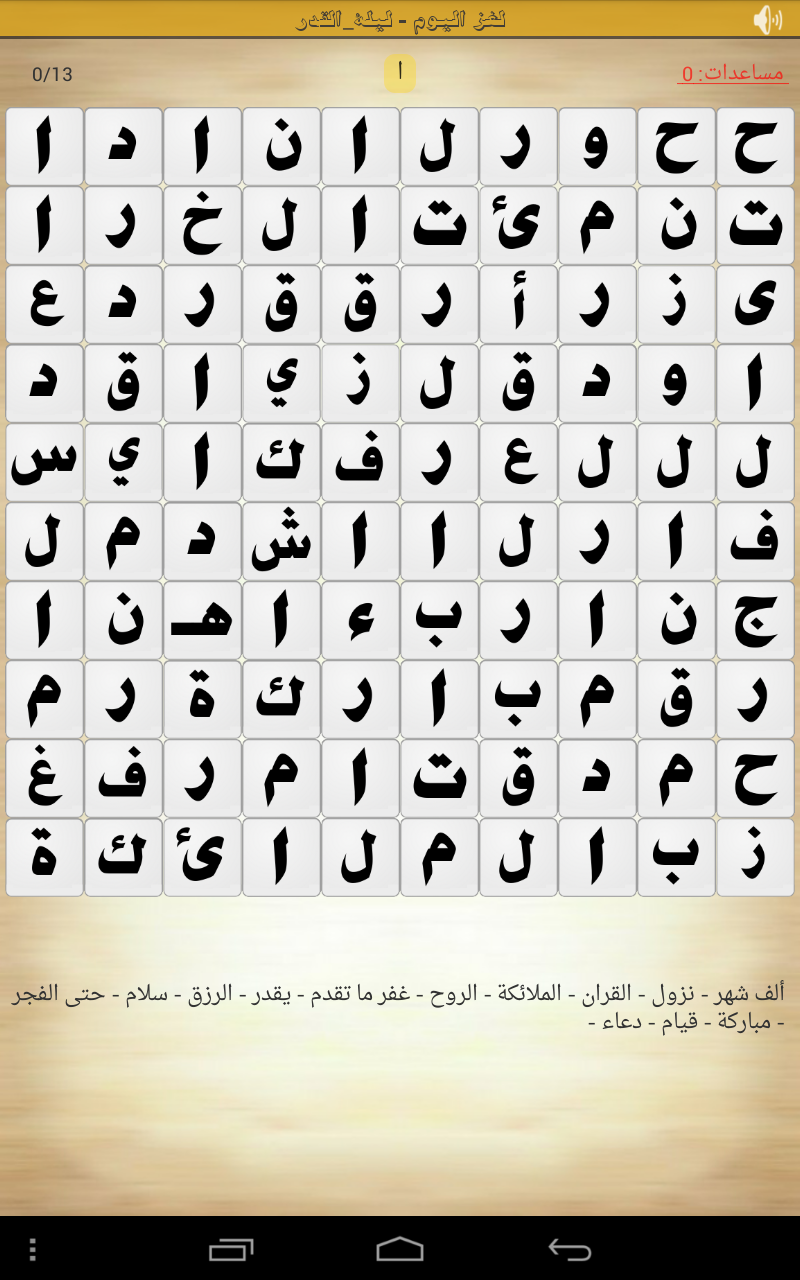 لغز اليوم - ليلة_القدر
مساعدات: 0
ا
0/13
ح ح و ر ل ا ن ا د ا
ت ن م ئ ت ا ل خ ر ا
ى ز ر أ ر ق ق ر د ع
ا و د ق ل ز ي ا ق د
ل ل ل ع ر ف ك ا ي س
ف ا ر ل ا ا ش د م ل
ج ن ا ر ب ء ا هـ ن ا
ر ق م ب ا ر ك ة ر م
ح م د ق ت ا م ر ف غ
ز ب ا ل م ل ا ئ ك ة
ألف شهر - نزول - القران - الملائكة - الروح - غفر ما تقدم - يقدر - الرزق - سلام - حتى الفجر
- مباركة - قيام - دعاء -